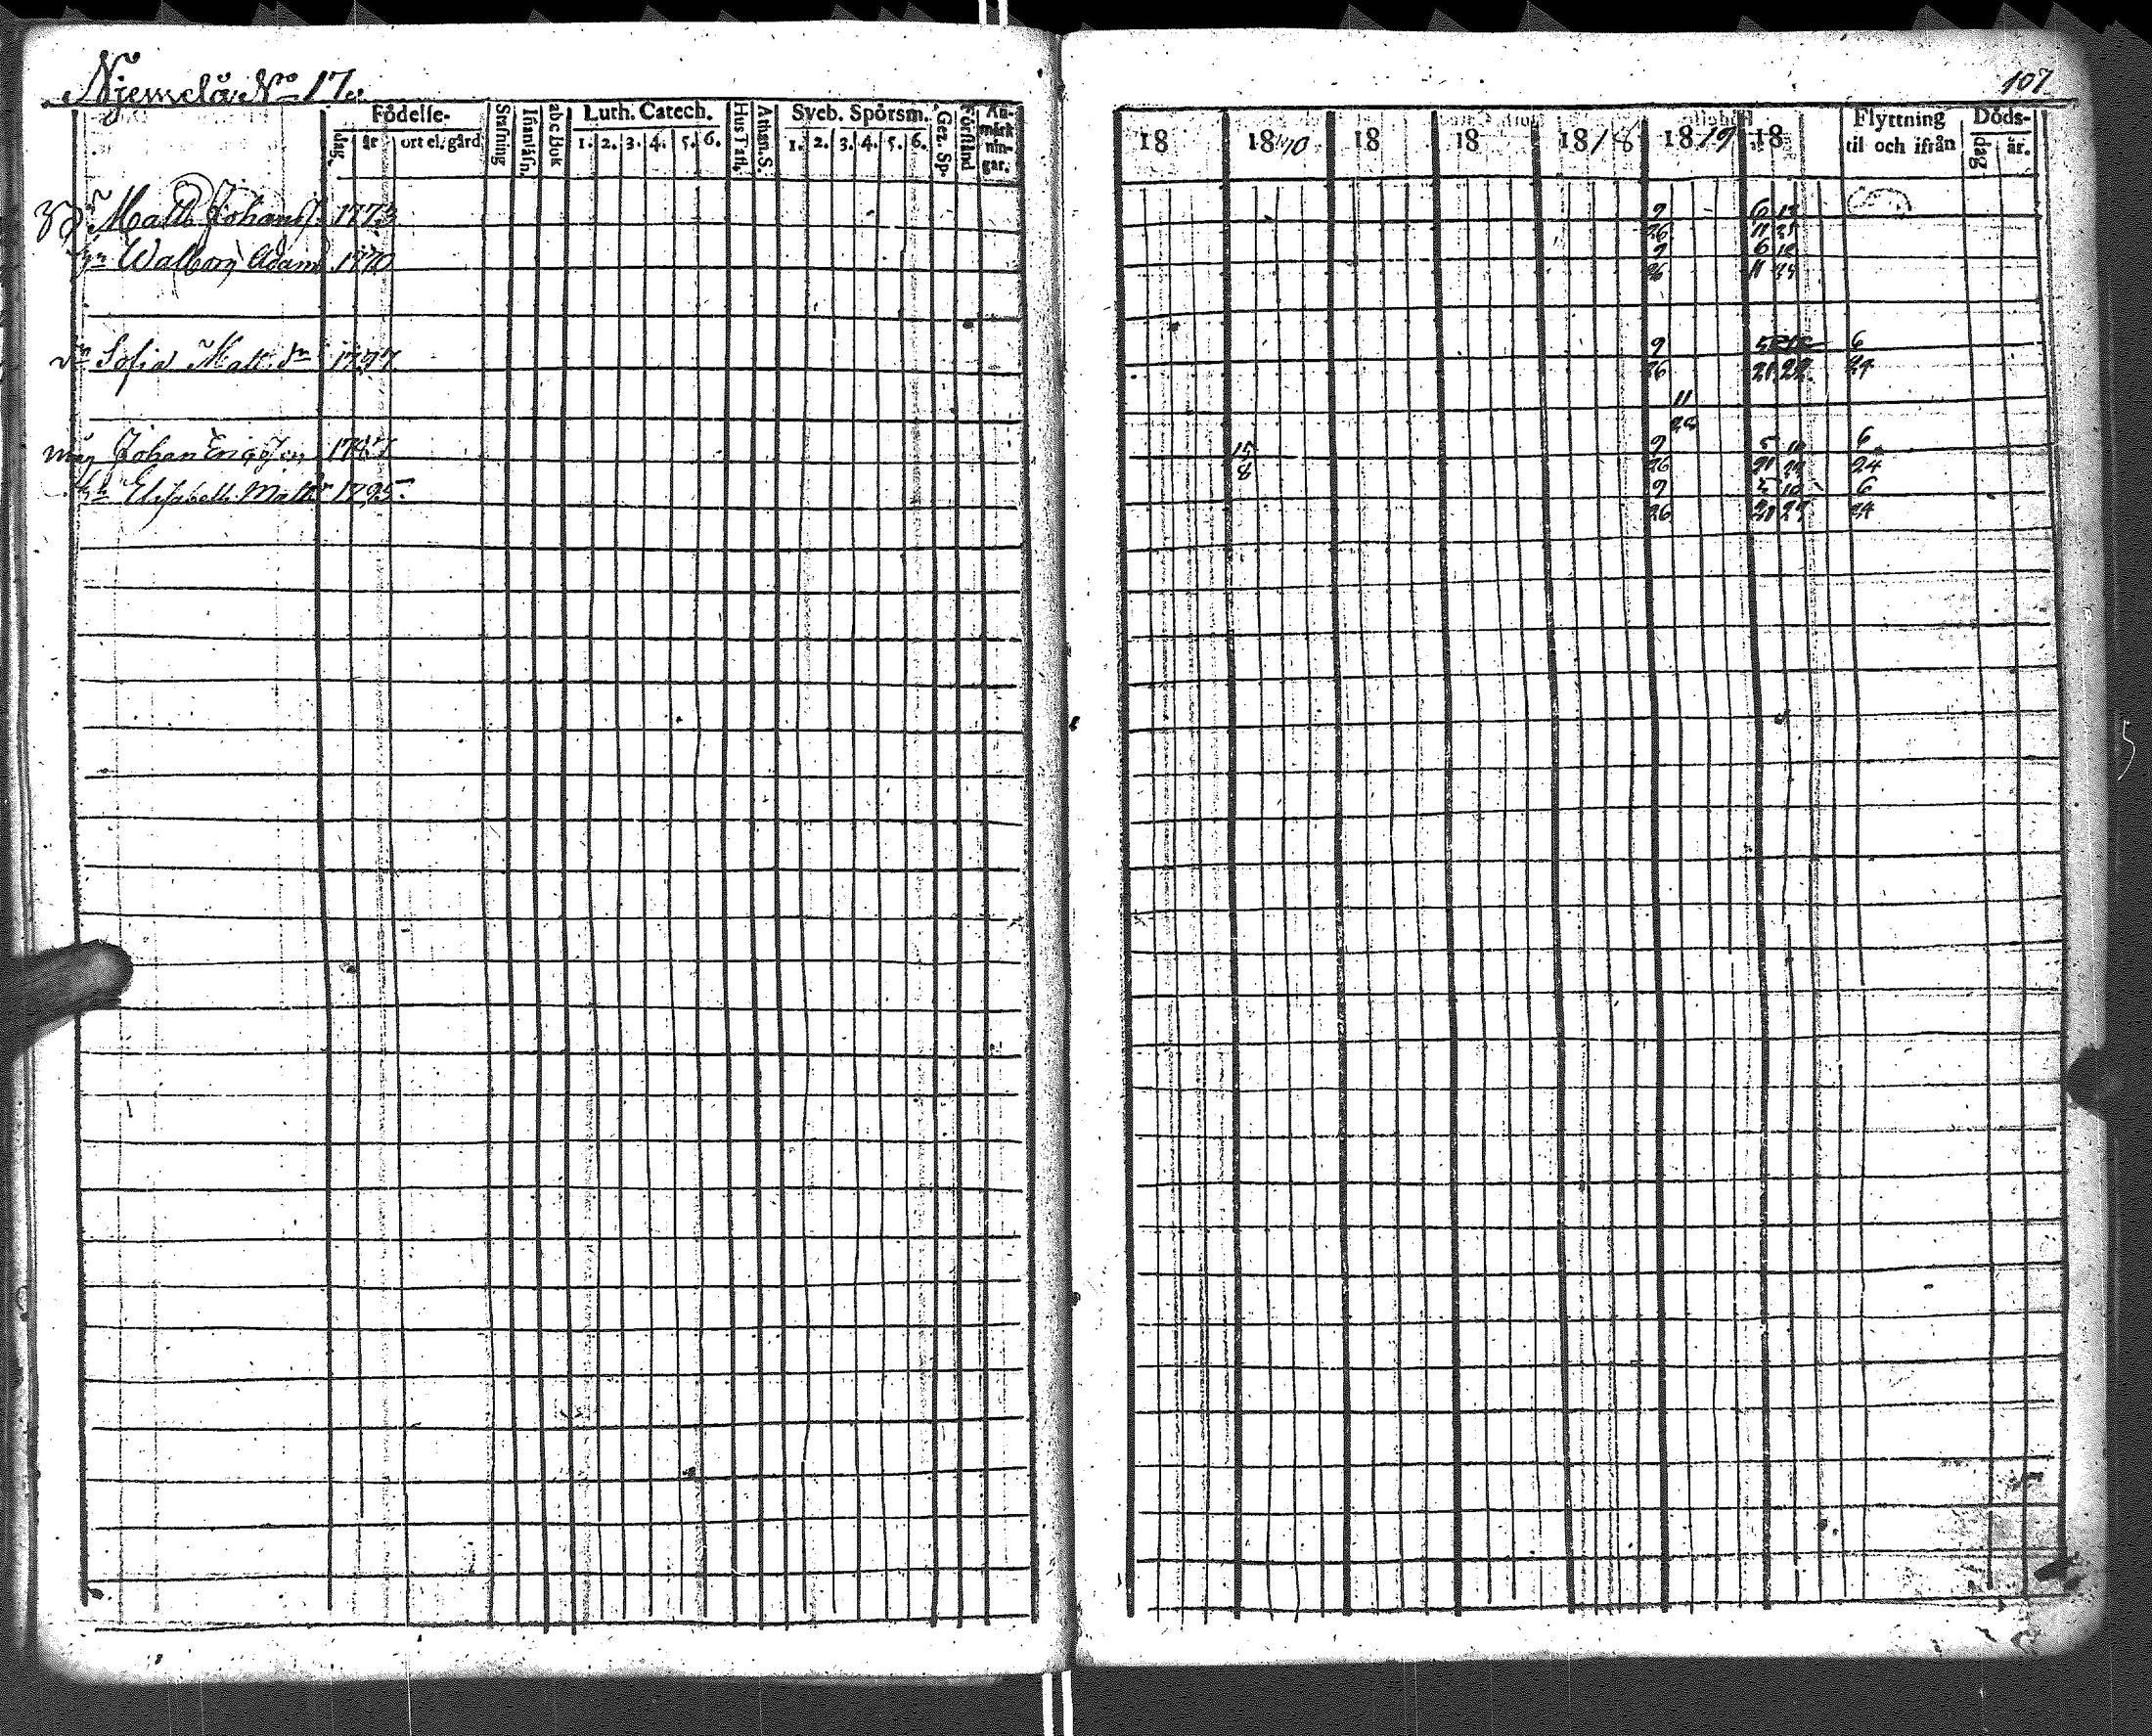 Njemelä No 17.
Födelse-
dag. år ort el. gård
Stafning Innanläsn. abc Bok
Luth. Catech.
1. 2. 3. 4. 5. 6.
Hus Tafl. Athan. S.
Sveb. Spörsm.
1. 2. 3. 4. 5. 6.
Gez. Sp. Förstånd
An-
märk
nin-
gar.
Matts Johans 1773
hu Walborg Adam 1770
Sofia Matt. dr 1797
Johan Ericsson
hu Elisabeth Matts 1795.
107
18 1810 18 18 1818 1819 18
Flyttning
til och ifrån
Döds-
dag år.
9 6 12
26 11
9 6 12
26 11
9 6
26 21 22 24
11
28
15 9 5 10 6
8 26 21 24
9 5 10 6
26 21 27 24